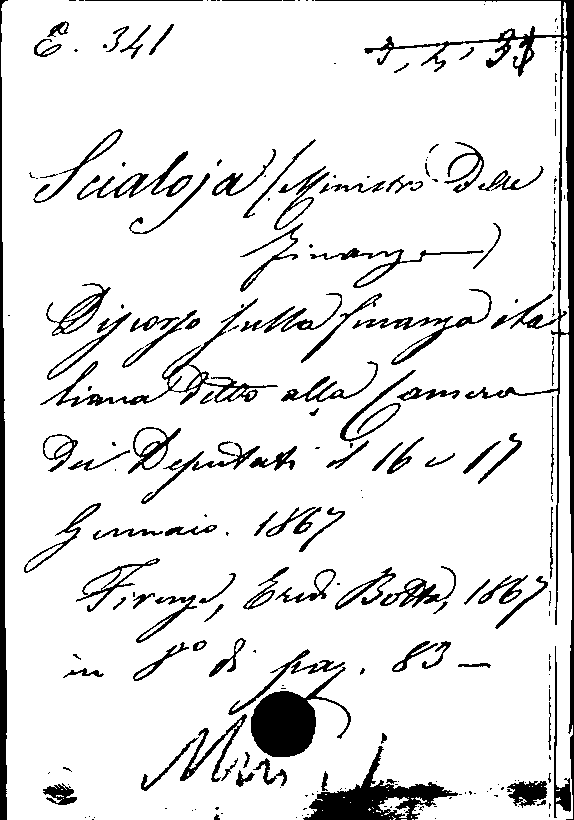 E. 341
3, 4, 33
Scialoja (Ministro delle
Finanze)
Discorso sulla finanza ita
liana detto alla Camera
dei Deputati il 16 e 17
Gennaio. 1867
Firenze, Eredi Botta, 1867
in 8º di pag. 83 —